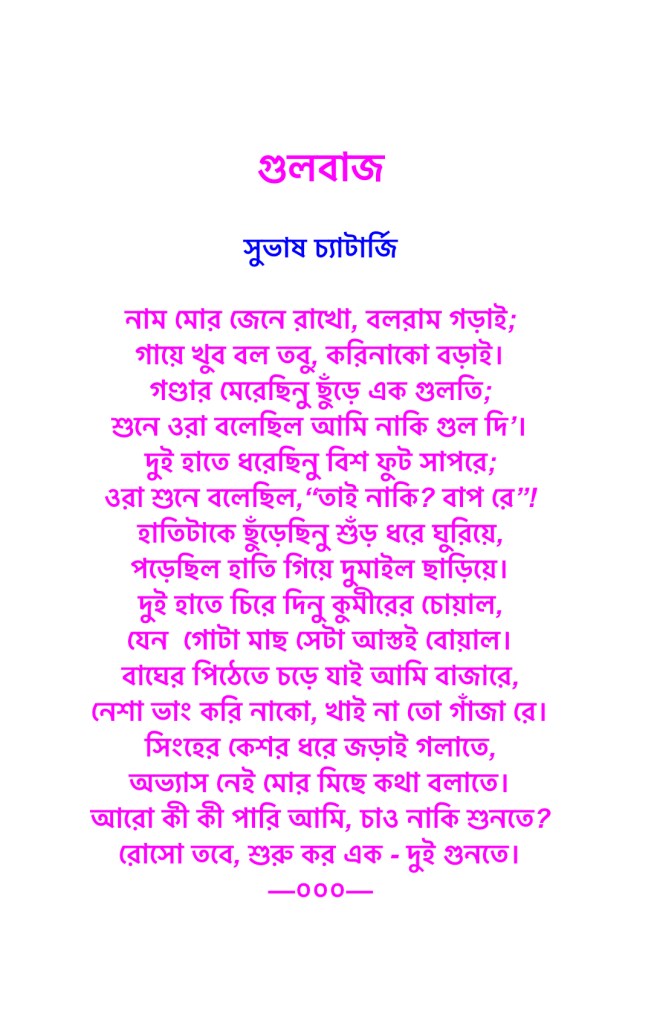 গুলবাজ
সুভাষ চ্যাটার্জি
নাম মোর জেনে রাখো, বলরাম গড়াই;
গায়ে খুব বল তবু, করিনাকো বড়াই।
গণ্ডার মেরেছিনু ছুঁড়ে এক গুলতি;
শুনে ওরা বলেছিল আমি নাকি গুল দি’।
দুই হাতে ধরেছিনু বিশ ফুট সাপরে;
ওরা শুনে বলেছিল,“তাই নাকি? বাপ রে”!
হাতিটাকে ছুঁড়েছিনু শুঁড় ধরে ঘুরিয়ে,
পড়েছিল হাতি গিয়ে দুমাইল ছাড়িয়ে।
দুই হাতে চিরে দিনু কুমীরের চোয়াল,
যেন  গোটা মাছ সেটা আস্তই বোয়াল।
বাঘের পিঠেতে চড়ে যাই আমি বাজারে,
নেশা ভাং করি নাকো, খাই না তো গাঁজা রে।
সিংহের কেশর ধরে জড়াই গলাতে,
অভ্যাস নেই মোর মিছে কথা বলাতে।
আরো কী কী পারি আমি, চাও নাকি শুনতে?
রোসো তবে, শুরু কর এক - দুই গুনতে।
—০০০—